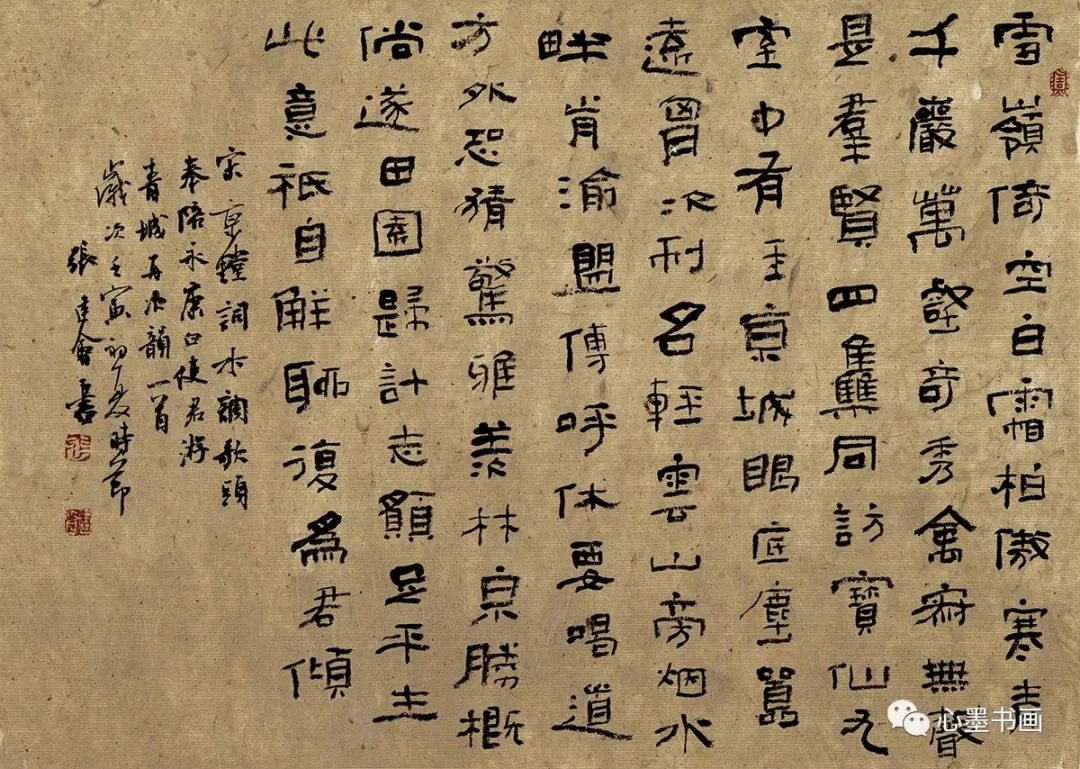 雪嶺倚空白霜柏傲寒青
千巖萬壑奇秀禽寂無聲
是羣賢四集同訪寶仙九
室中有主京城眼底塵囂
遠胷次利名輕雲山旁烟水
畔肯渝盟傳呼休要喝道
方外恐猜驚雅羨林泉勝概
倘遂田園歸計志願足平生
此意祇自解聊復爲君傾
宋京鏜詞水調歌頭
奉陪永康白使君游
青城再次韻一首
歲次壬寅初夏時節
張建會書
心墨书画